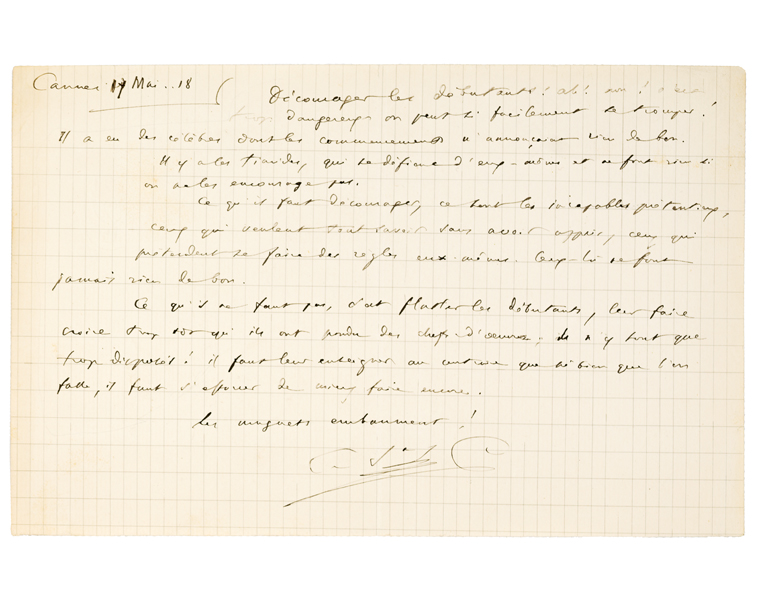 Cannes 17 Mai.. 18
Décourager les débutants! ah! non! c'est
trop dangereux on peut si facilement se tromper!
Il a eu des célèbres dont les commencements n'annonçaient rien de bon.
Il y a les timides, qui se défient d'eux-mêmes et ne font rien si
on ne les encourage pas.
Ce qu'il faut décourager, ce sont les incapables prétentieux,
ceux qui veulent tout savoir sans avoir appris, ceux qui
prétendent se faire des règles eux-mêmes. Ceux-là ne font
jamais rien de bon.
Ce qu'il ne faut pas, c'est flatter les débutants, leur faire
croire trop tôt qu'ils ont pondu des chefs-d'œuvre; ils n'y sont que
trop disposés! il faut leur enseigner au contraire que si bien que l'on
fasse, il faut s'efforcer de mieux faire encore.
Les muguets embaument!